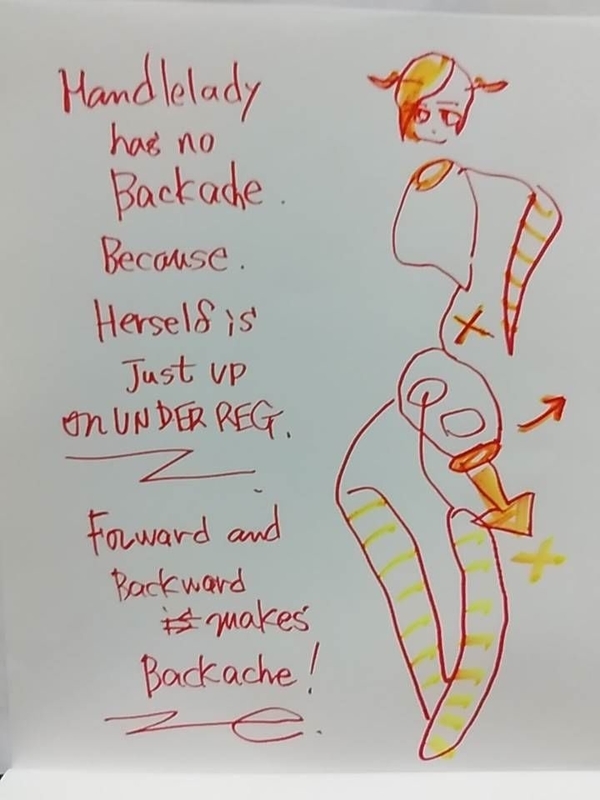 Handlelady
has no
Backache.
Because.
Herself is
Just up
on UNDER REG.
Forward and
Backward
is makes
Backache!